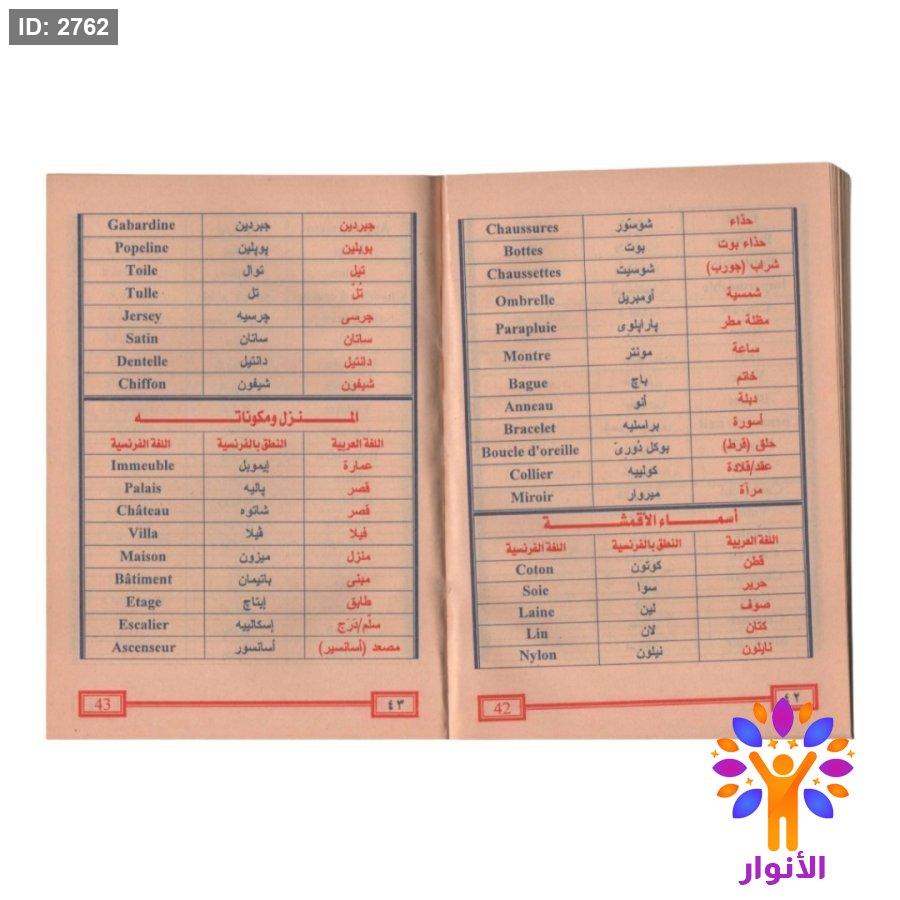 ID: 2762
حذاء شوسّور Chaussures
حذاء بوت بوت Bottes
شراب (جورب) شوسيت Chaussettes
شمسية أومبريل Ombrelle
مظلة مطر پاراپلوى Parapluie
ساعة مونتر Montre
خاتم باچ Bague
دبلة أنو Anneau
أسورة براسليه Bracelet
حلق (قرط) بوكل دُورىّ Boucle d'oreille
عقد/قلادة كولييه Collier
مرآة ميروار Miroir
أسمـــاء الأقمشـــة
اللغة العربية النطق بالفرنسية اللغة الفرنسية
قطن كوتون Coton
حرير سوا Soie
صوف لين Laine
كتان لان Lin
نايلون نيلون Nylon
42 ٤٢
جبردين جبردين Gabardine
بوبلين پوپلين Popeline
تيل توال Toile
تُلّ تل Tulle
جرسى چرسيه Jersey
ساتان ساتان Satin
دانتيل دانتيل Dentelle
شيفون شيفون Chiffon
المـــنزل ومكوناتـــه
اللغة العربية النطق بالفرنسية اللغة الفرنسية
عمارة إيموبل Immeuble
قصر پاليه Palais
قصر شاتوه Château
فيلا ڤيلا Villa
منزل ميزون Maison
مبنى باتيمان Bâtiment
طابق إيتاچ Etage
سلّم/دَرَج إسكالييه Escalier
مصعد (أسانسير) أسانسور Ascenseur
43 ٤٣
الأنوار